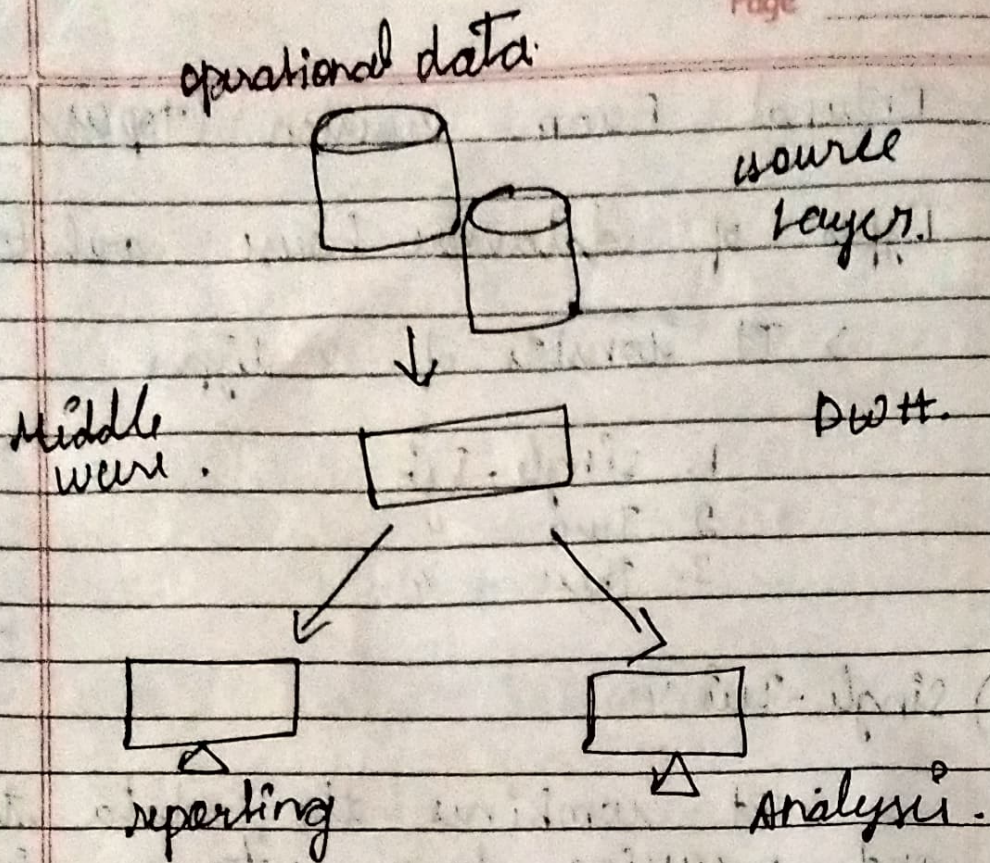 Page
operational data.
source
Layer.
Middle
ware.
DWH.
reporting
Analysis.